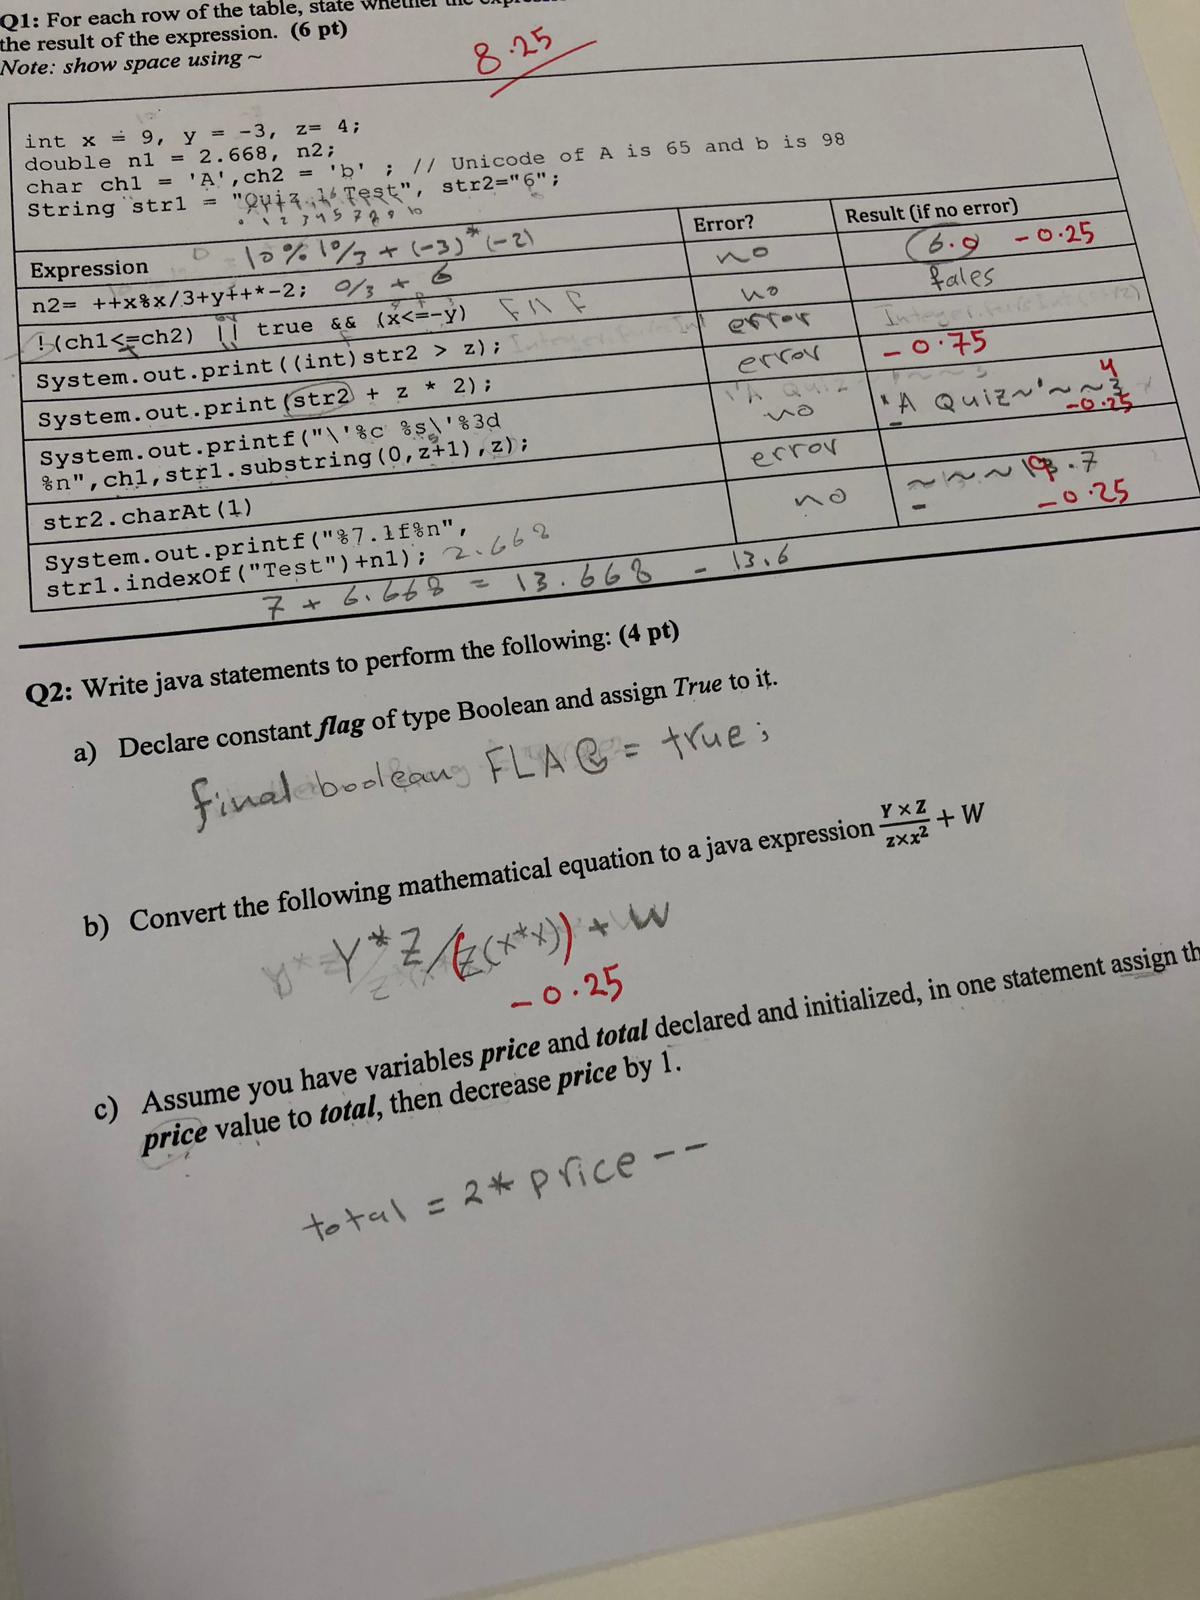 Q1: For each row of the table, state whether the
the result of the expression. (6 pt)
Note: show space using ~
8.25
int x = 9, y = -3, z= 4;
double n1 = 2.668, n2;
char ch1 = 'A',ch2 = 'b' ; // Unicode of A is 65 and b is 98
String str1 = "Quiz 1 Test", str2="6";
Expression
10%10/3 + (-3)*(-2)
Error?
Result (if no error)
n2= ++x%x/3+y++*-2; 0/3 + 6
no
6.0 -0.25
!(ch1<=ch2) || true && (x<=-y) F || F
no
fales
System.out.print((int)str2 > z);
error
System.out.print(str2 + z * 2);
error
-0.75
System.out.printf("\'%c %s\'%3d
%n",ch1,str1.substring(0,z+1),z);
no
'A Quiz~'~~3 4
-0.25
str2.charAt(1)
error
System.out.printf("%7.1f%n",
str1.indexOf("Test")+n1); 2.668
no
-0.25
7 + 6.668 = 13.668 - 13.6
Q2: Write java statements to perform the following: (4 pt)
a) Declare constant flag of type Boolean and assign True to it.
final boolean FLAG = true;
b) Convert the following mathematical equation to a java expression Y×Z/z×x² + W
Y*Z/(z(x*x)) + W
-0.25
c) Assume you have variables price and total declared and initialized, in one statement assign th
price value to total, then decrease price by 1.
total = 2* price --